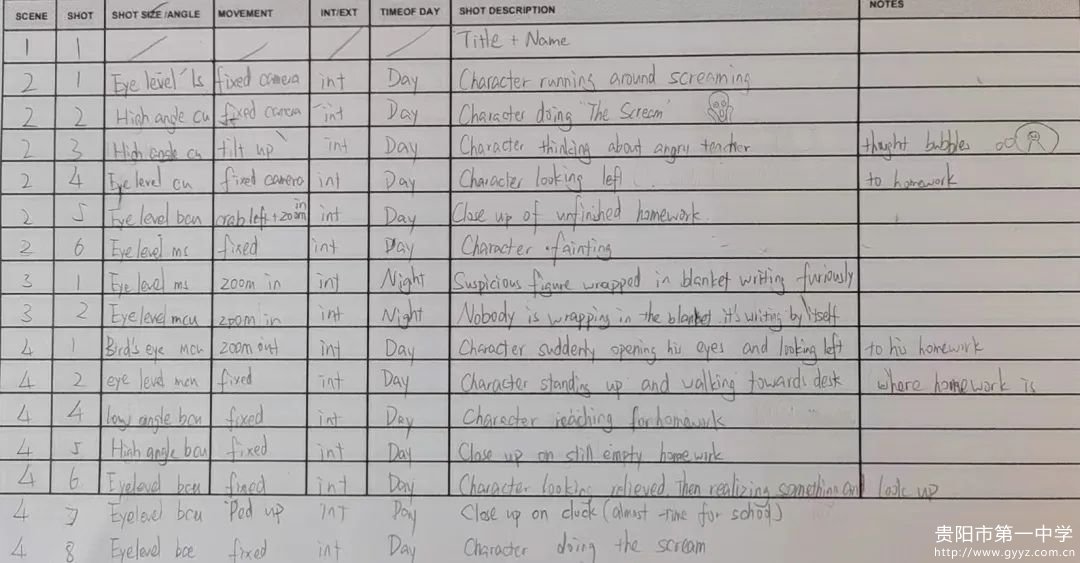 SCENE SHOT SHOT SIZE/ANGLE MOVEMENT INT/EXT TIMEOF DAY SHOT DESCRIPTION NOTES
1 1 / / / / Title + Name
2 1 Eye level ls fixed camera int Day Character running around screaming
2 2 High angle cu fixed camera int Day Character doing "The Scream"
2 3 High angle cu tilt up int Day Character thinking about angry teacher thought bubbles
2 4 Eye level cu fixed camera int Day Character looking left to homework
2 5 Eye level bcu crab left + zoom in int Day Close up of unfinished homework.
2 6 Eye level ms fixed int Day Character fainting
3 1 Eye level ms zoom in int Night Suspicious figure wrapped in blanket writing furiously
3 2 Eye level mcu zoom in int Night Nobody is wrapping in the blanket. it's writing by itself
4 1 Bird's eye mcu zoom out int Day Character suddenly opening his eyes and looking left to his homework
4 2 eye level mcu fixed int Day Character standing up and walking towards desk where homework is
4 4 low angle bcu fixed int Day Character reaching for homework
4 5 High angle bcu fixed int Day Close up on still empty homework
4 6 Eyelevel bcu fixed int Day Character looking relieved, then realizing somethinn and look up
4 7 Eyelevel bcu Ped up int Day Close up on clock (almost time for school)
4 8 Eyelevel bce fixed int Day Character doing the scream
贵阳市第一中学
http://www.gyyz.com.cn